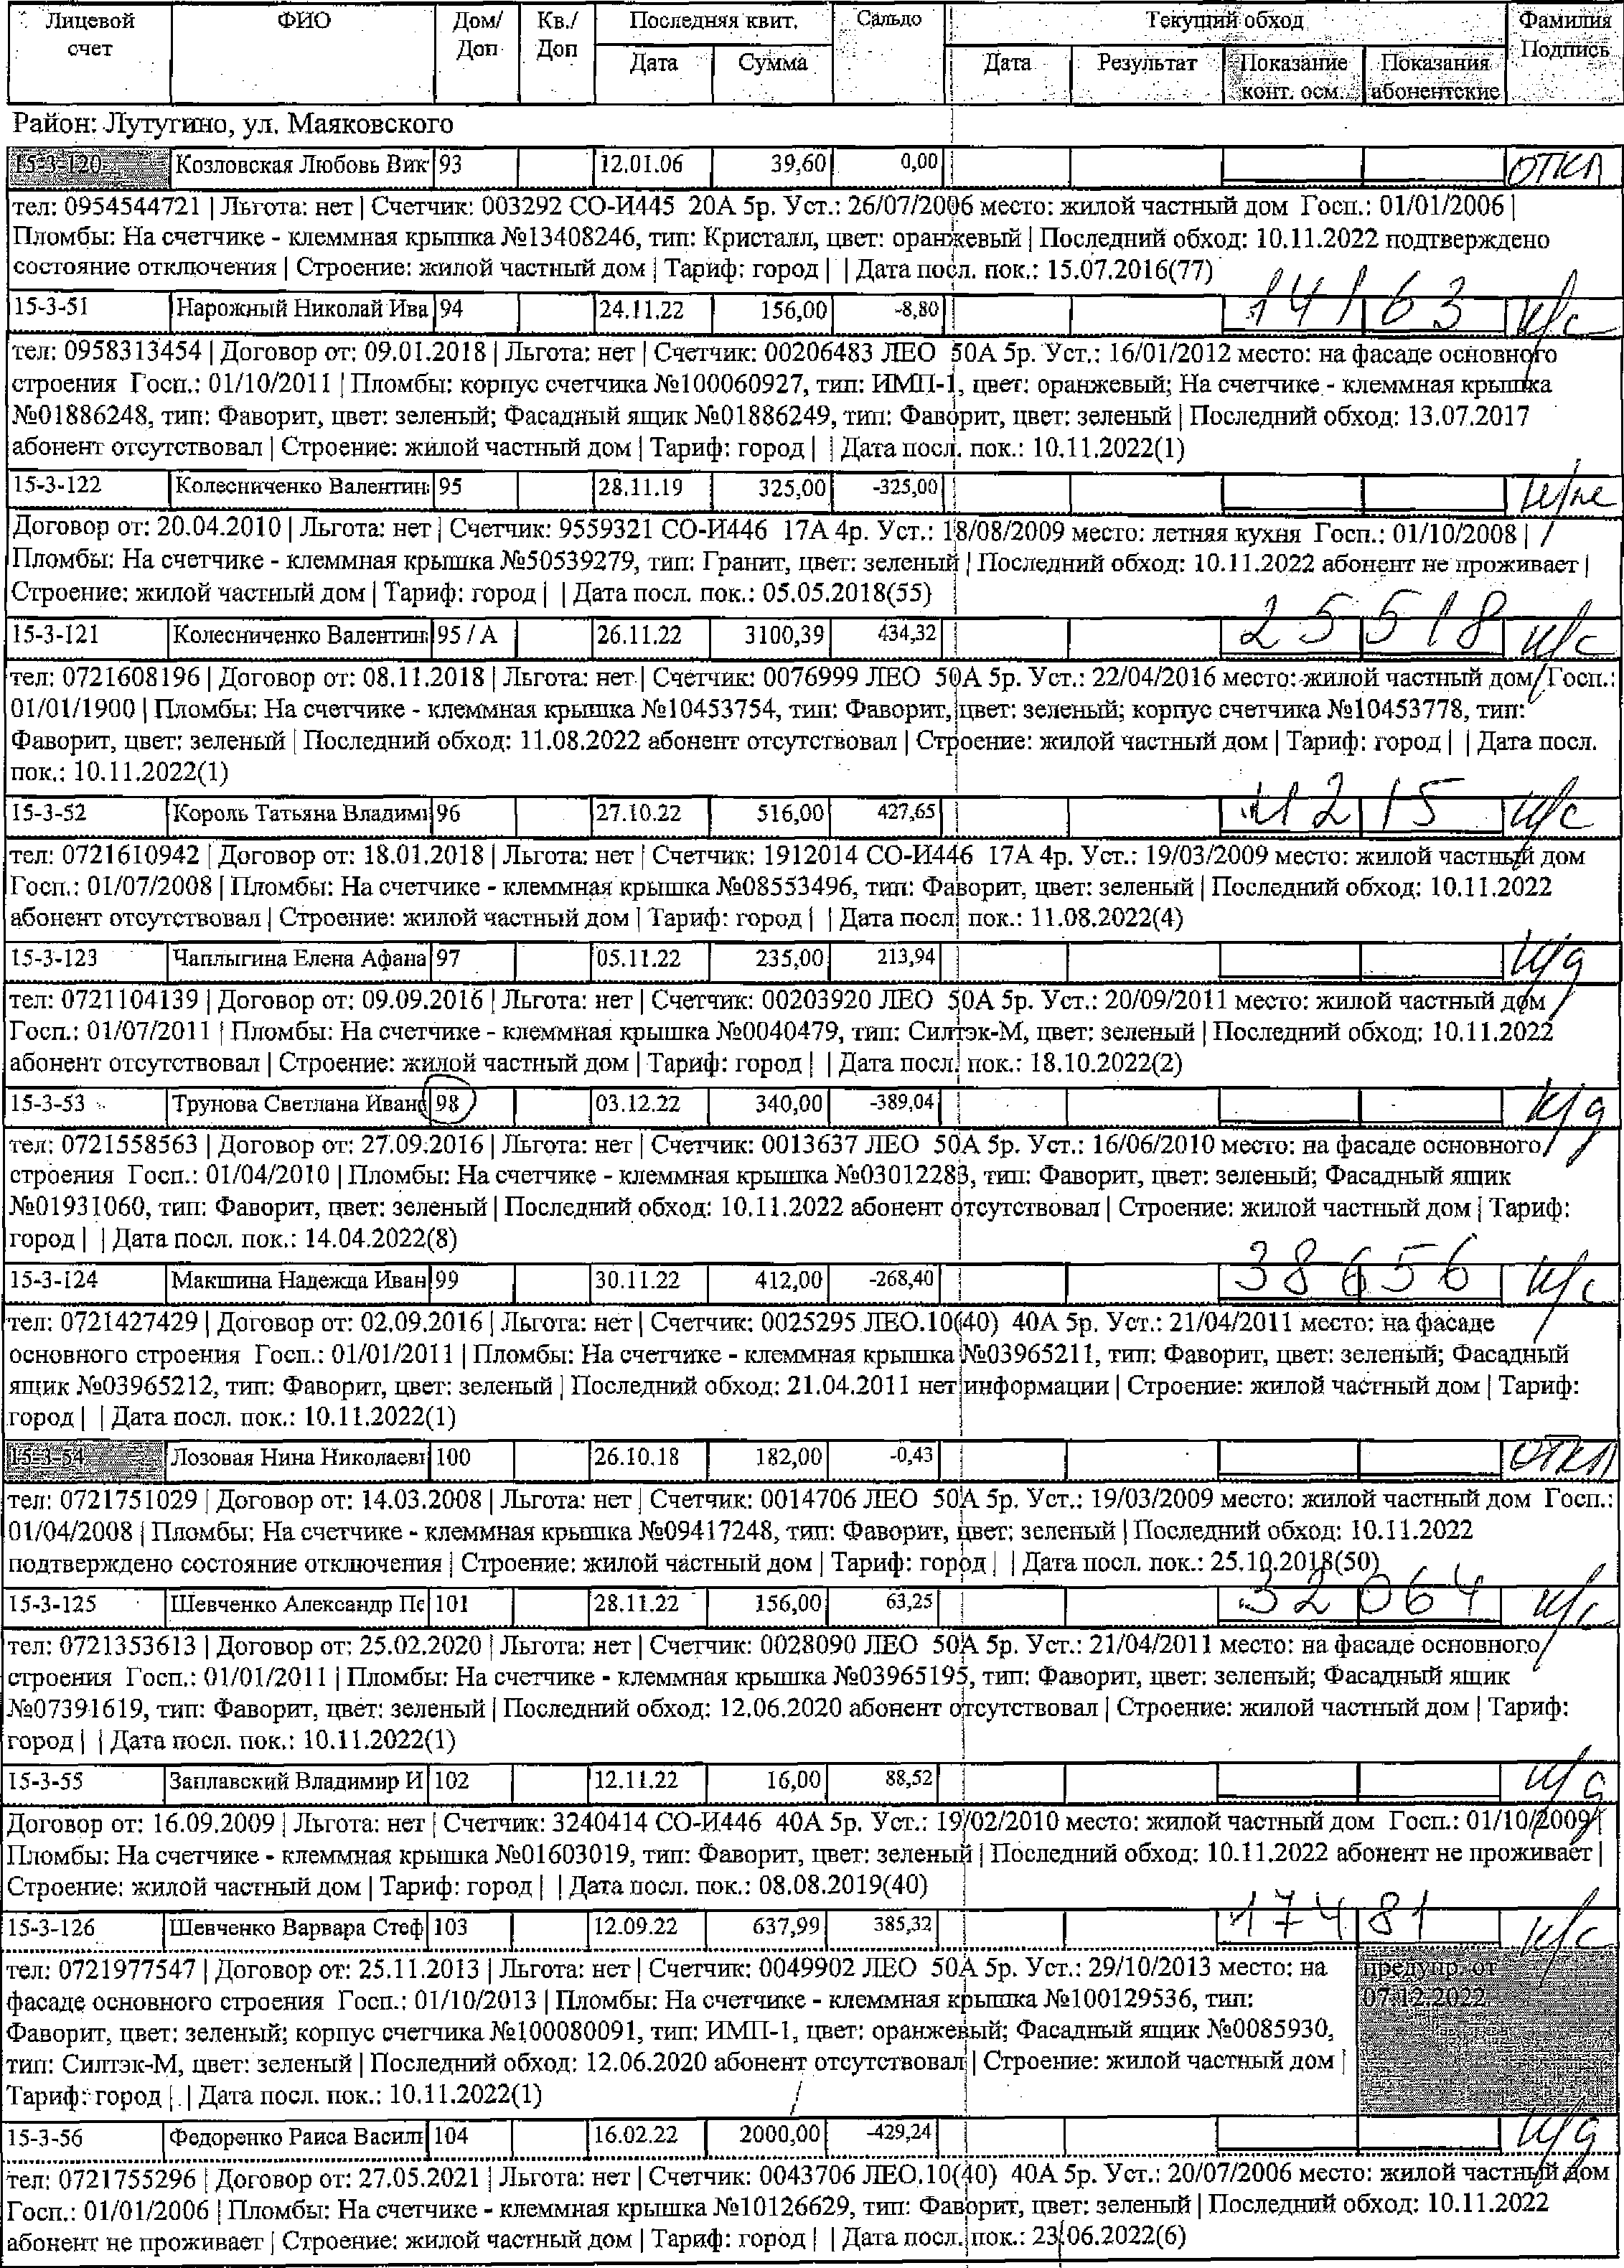 Лицевой счет ФИО Дом/ Доп Кв./ Доп Последняя квит. Сальдо Текущий обход Фамилия Подпись
Дата Сумма Дата Результат Показание конт. осм. Показания абонентские
Район: Лутугино, ул. Маяковского
15-3-120 Козловская Любовь Вик 93 12.01.06 39,60 0,00 откл
тел: 0954544721 | Льгота: нет | Счетчик: 003292 СО-И445 20А 5р. Уст.: 26/07/2006 место: жилой частный дом Госп.: 01/01/2006 |
Пломбы: На счетчике - клеммная крышка №13408246, тип: Кристалл, цвет: оранжевый | Последний обход: 10.11.2022 подтверждено
состояние отключения | Строение: жилой частный дом | Тариф: город | | Дата посл. пок.: 15.07.2016(77)
15-3-51 Нарожный Николай Ива 94 24.11.22 156,00 -8,80 14163 и/с
тел: 0958313454 | Договор от: 09.01.2018 | Льгота: нет | Счетчик: 00206483 ЛЕО 50А 5р. Уст.: 16/01/2012 место: на фасаде основного
строения Госп.: 01/10/2011 | Пломбы: корпус счетчика №100060927, тип: ИМП-1, цвет: оранжевый; На счетчике - клеммная крышка
№01886248, тип: Фаворит, цвет: зеленый; Фасадный ящик №01886249, тип: Фаворит, цвет: зеленый | Последний обход: 13.07.2017
абонент отсутствовал | Строение: жилой частный дом | Тариф: город | | Дата посл. пок.: 10.11.2022(1)
15-3-122 Колесниченко Валентин 95 28.11.19 325,00 -325,00
Договор от: 20.04.2010 | Льгота: нет | Счетчик: 9559321 СО-И446 17А 4р. Уст.: 18/08/2009 место: летняя кухня Госп.: 01/10/2008 |
Пломбы: На счетчике - клеммная крышка №50539279, тип: Гранит, цвет: зеленый | Последний обход: 10.11.2022 абонент не проживает |
Строение: жилой частный дом | Тариф: город | | Дата посл. пок.: 05.05.2018(55)
15-3-121 Колесниченко Валентин 95 / А 26.11.22 3100,39 434,32 25518 и/с
тел: 0721608196 | Договор от: 08.11.2018 | Льгота: нет | Счетчик: 0076999 ЛЕО 50А 5р. Уст.: 22/04/2016 место: жилой частный дом Госп.:
01/01/1900 | Пломбы: На счетчике - клеммная крышка №10453754, тип: Фаворит, цвет: зеленый; корпус счетчика №10453778, тип:
Фаворит, цвет: зеленый | Последний обход: 11.08.2022 абонент отсутствовал | Строение: жилой частный дом | Тариф: город | | Дата посл.
пок.: 10.11.2022(1)
15-3-52 Король Татьяна Владими 96 27.10.22 516,00 427,65 11215 и/с
тел: 0721610942 | Договор от: 18.01.2018 | Льгота: нет | Счетчик: 1912014 СО-И446 17А 4р. Уст.: 19/03/2009 место: жилой частный дом
Госп.: 01/07/2008 | Пломбы: На счетчике - клеммная крышка №08553496, тип: Фаворит, цвет: зеленый | Последний обход: 10.11.2022
абонент отсутствовал | Строение: жилой частный дом | Тариф: город | | Дата посл. пок.: 11.08.2022(4)
15-3-123 Чаплыгина Елена Афана 97 05.11.22 235,00 213,94 и/д
тел: 0721104139 | Договор от: 09.09.2016 | Льгота: нет | Счетчик: 00203920 ЛЕО 50А 5р. Уст.: 20/09/2011 место: жилой частный дом
Госп.: 01/07/2011 | Пломбы: На счетчике - клеммная крышка №0040479, тип: Силтэк-М, цвет: зеленый | Последний обход: 10.11.2022
абонент отсутствовал | Строение: жилой частный дом | Тариф: город | | Дата посл. пок.: 18.10.2022(2)
15-3-53 Трунова Светлана Иван 98 03.12.22 340,00 -389,04 и/д
тел: 0721558563 | Договор от: 27.09.2016 | Льгота: нет | Счетчик: 0013637 ЛЕО 50А 5р. Уст.: 16/06/2010 место: на фасаде основного
строения Госп.: 01/04/2010 | Пломбы: На счетчике - клеммная крышка №03012283, тип: Фаворит, цвет: зеленый; Фасадный ящик
№01931060, тип: Фаворит, цвет: зеленый | Последний обход: 10.11.2022 абонент отсутствовал | Строение: жилой частный дом | Тариф:
город | | Дата посл. пок.: 14.04.2022(8)
15-3-124 Макшина Надежда Иван 99 30.11.22 412,00 -268,40 38656 и/с
тел: 0721427429 | Договор от: 02.09.2016 | Льгота: нет | Счетчик: 0025295 ЛЕО.10(40) 40А 5р. Уст.: 21/04/2011 место: на фасаде
основного строения Госп.: 01/01/2011 | Пломбы: На счетчике - клеммная крышка №03965211, тип: Фаворит, цвет: зеленый; Фасадный
ящик №03965212, тип: Фаворит, цвет: зеленый | Последний обход: 21.04.2011 нет информации | Строение: жилой частный дом | Тариф:
город | | Дата посл. пок.: 10.11.2022(1)
15-3-54 Лозовая Нина Николаевн 100 26.10.18 182,00 -0,43 откл
тел: 0721751029 | Договор от: 14.03.2008 | Льгота: нет | Счетчик: 0014706 ЛЕО 50А 5р. Уст.: 19/03/2009 место: жилой частный дом Госп.:
01/04/2008 | Пломбы: На счетчике - клеммная крышка №09417248, тип: Фаворит, цвет: зеленый | Последний обход: 10.11.2022
подтверждено состояние отключения | Строение: жилой частный дом | Тариф: город | | Дата посл. пок.: 25.10.2018(50)
15-3-125 Шевченко Александр Пе 101 28.11.22 156,00 63,25 32064 и/с
тел: 0721353613 | Договор от: 25.02.2020 | Льгота: нет | Счетчик: 0028090 ЛЕО 50А 5р. Уст.: 21/04/2011 место: на фасаде основного
строения Госп.: 01/01/2011 | Пломбы: На счетчике - клеммная крышка №03965195, тип: Фаворит, цвет: зеленый; Фасадный ящик
№07391619, тип: Фаворит, цвет: зеленый | Последний обход: 12.06.2020 абонент отсутствовал | Строение: жилой частный дом | Тариф:
город | | Дата посл. пок.: 10.11.2022(1)
15-3-55 Заплавский Владимир И 102 12.11.22 16,00 88,52
Договор от: 16.09.2009 | Льгота: нет | Счетчик: 3240414 СО-И446 40А 5р. Уст.: 19/02/2010 место: жилой частный дом Госп.: 01/10/2009 |
Пломбы: На счетчике - клеммная крышка №01603019, тип: Фаворит, цвет: зеленый | Последний обход: 10.11.2022 абонент не проживает |
Строение: жилой частный дом | Тариф: город | | Дата посл. пок.: 08.08.2019(40)
15-3-126 Шевченко Варвара Стеф 103 12.09.22 637,99 385,32 17481 и/с
тел: 0721977547 | Договор от: 25.11.2013 | Льгота: нет | Счетчик: 0049902 ЛЕО 50А 5р. Уст.: 29/10/2013 место: на предупр. от
фасаде основного строения Госп.: 01/10/2013 | Пломбы: На счетчике - клеммная крышка №100129536, тип: 07.12.2022
Фаворит, цвет: зеленый; корпус счетчика №100080091, тип: ИМП-1, цвет: оранжевый; Фасадный ящик №0085930,
тип: Силтэк-М, цвет: зеленый | Последний обход: 12.06.2020 абонент отсутствовал | Строение: жилой частный дом |
Тариф: город | | Дата посл. пок.: 10.11.2022(1)
15-3-56 Федоренко Раиса Васили 104 16.02.22 2000,00 -429,24 и/д
тел: 0721755296 | Договор от: 27.05.2021 | Льгота: нет | Счетчик: 0043706 ЛЕО.10(40) 40А 5р. Уст.: 20/07/2006 место: жилой частный дом
Госп.: 01/01/2006 | Пломбы: На счетчике - клеммная крышка №10126629, тип: Фаворит, цвет: зеленый | Последний обход: 10.11.2022
абонент не проживает | Строение: жилой частный дом | Тариф: город | | Дата посл. пок.: 23.06.2022(6)